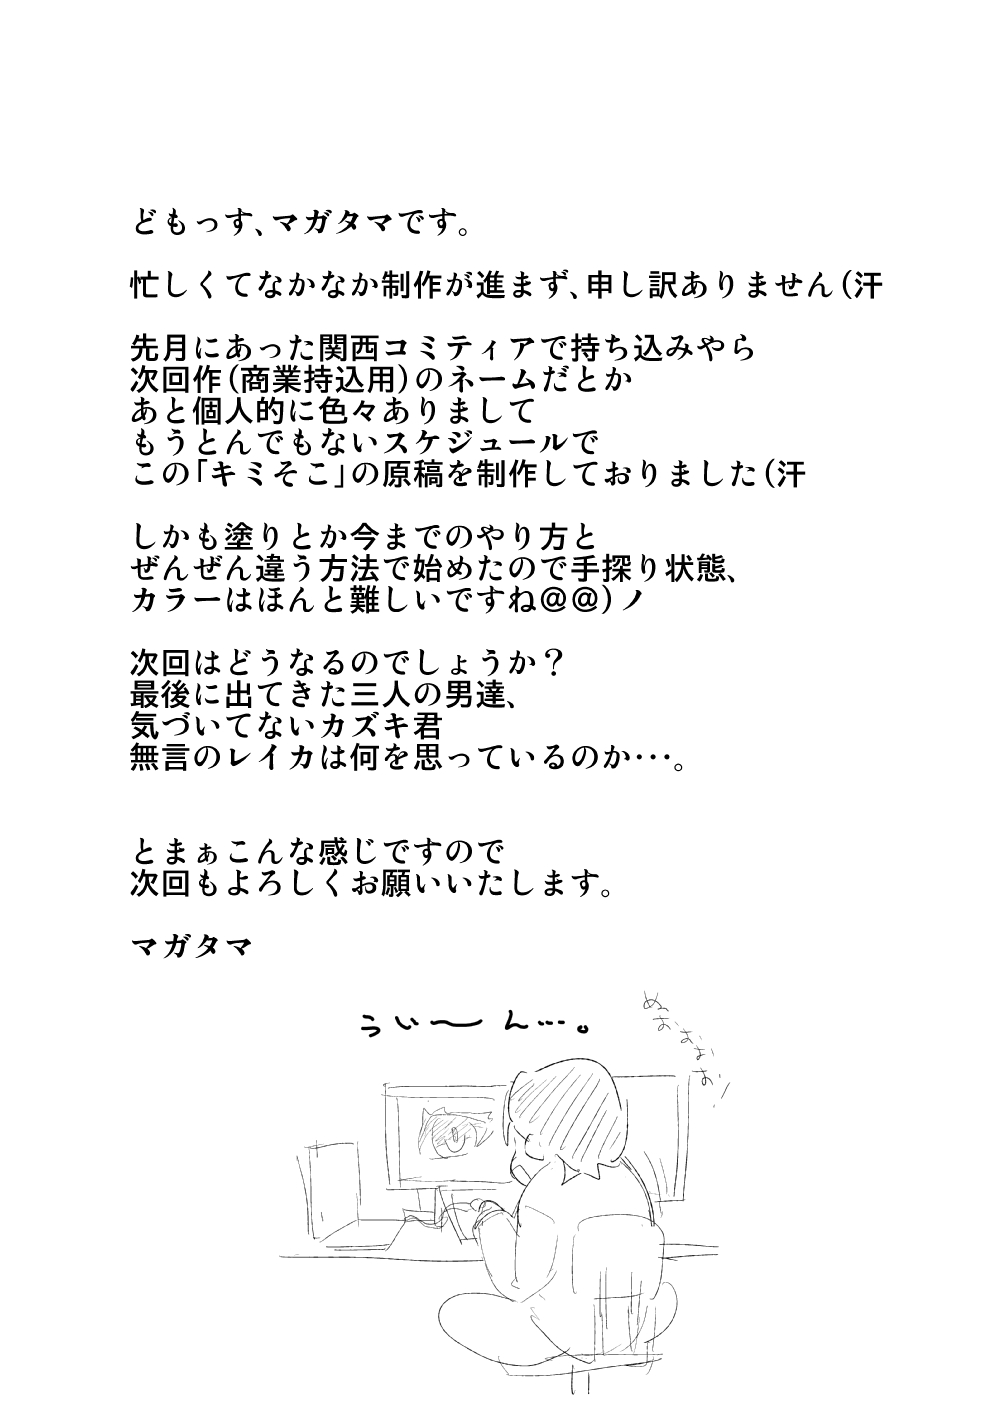 どもっす、マガタマです。
忙しくてなかなか制作が進まず、申し訳ありません(汗
先月にあった関西コミティアで持ち込みやら
次回作(商業持込用)のネームだとか
あと個人的に色々ありまして
もうとんでもないスケジュールで
この「キミそこ」の原稿を制作しておりました(汗
しかも塗りとか今までのやり方と
ぜんぜん違う方法で始めたので手探り状態、
カラーはほんと難しいですね@@)ノ
次回はどうなるのでしょうか?
最後に出てきた三人の男達、
気づいてないカズキ君
無言のレイカは何を思っているのか・・・。
とまぁこんな感じですので
次回もよろしくお願いいたします。
マガタマ
うぃ〜ん…。
ぬぉおおお!